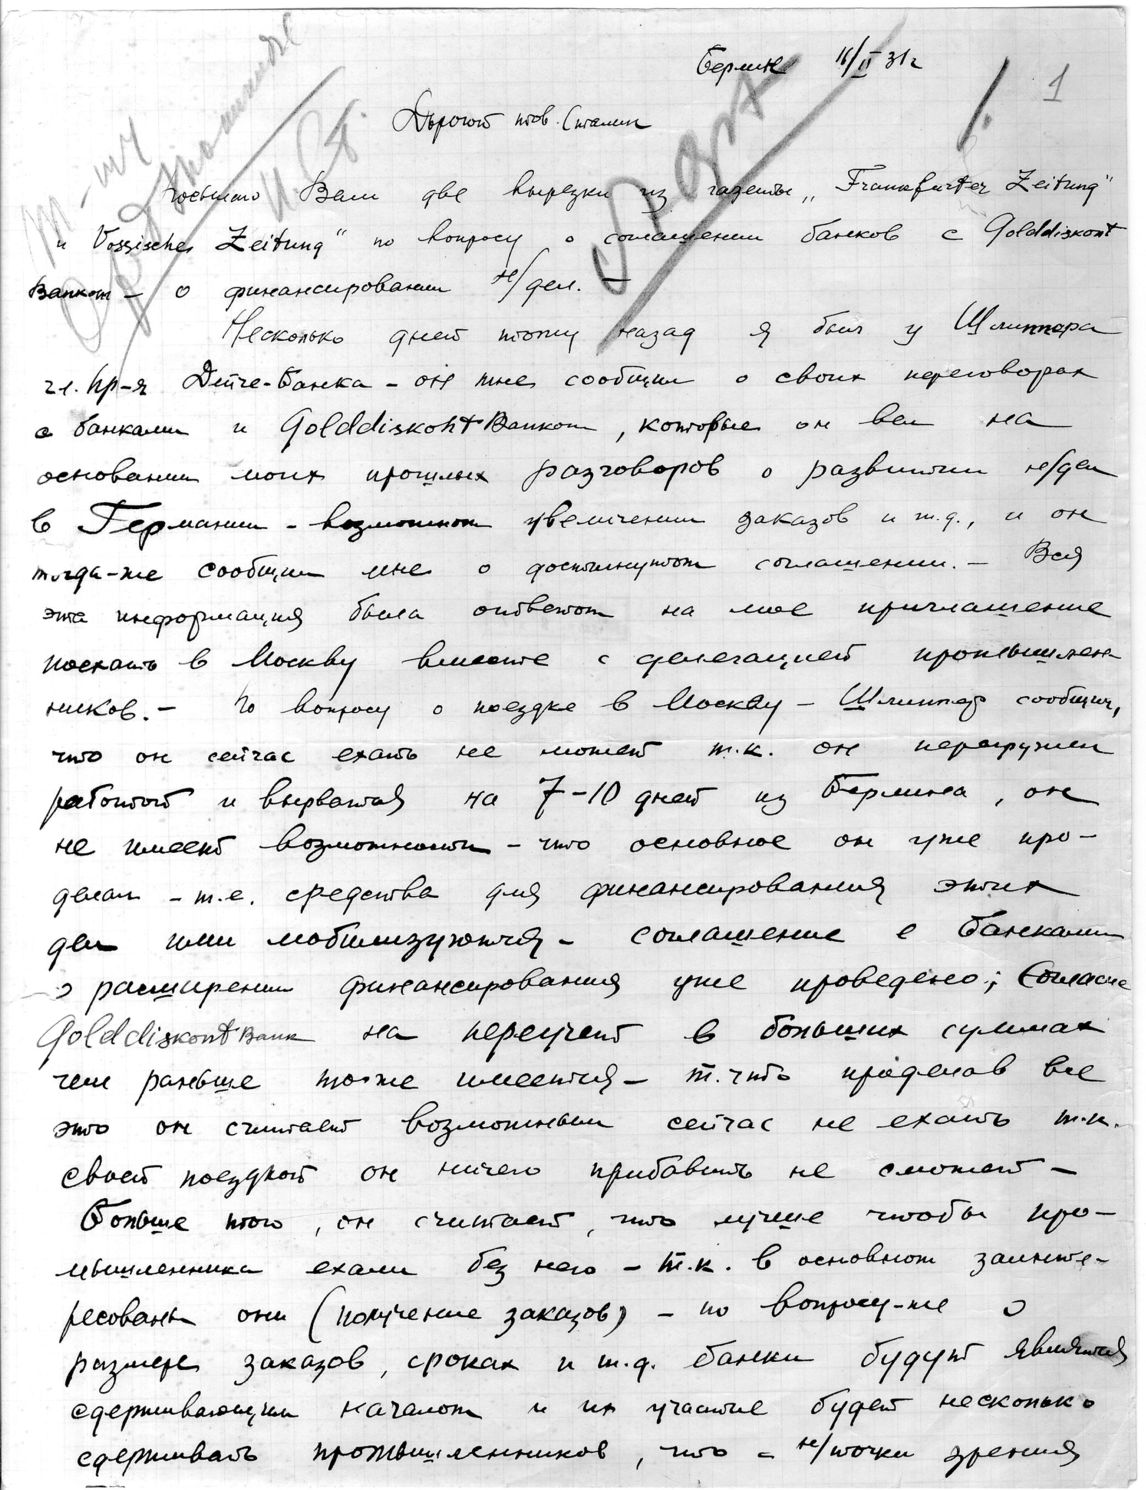 Берлин 16/II 31 г
1
Дорогой тов. Сталин
Посылаю Вам две вырезки из газеты „Frankfurter Zeitung"
и Vossische Zeitung" по вопросу о соглашении банков с Golddiskont
Банком – о финансировании н/дел. –
Несколько дней тому назад я был у Шлиппера
чл. пр-я Дейче-Банка – он мне сообщил о своих переговорах
с банками и Golddiskont Банком, которые он вел на
основании моих прошлых разговоров о развитии н/дел
в Германии – возможном увеличении заказов и т.д., и он
тогда-же сообщил мне о достигнутом соглашении. – Вся
эта информация была ответом на мое приглашение
поехать в Москву вместе с делегацией промышлен-
ников. – По вопросу о поездке в Москву – Шлиппер сообщил,
что он сейчас ехать не может т.к. он перегружен
работой и вырваться на 7–10 дней из Берлина, он
не имеет возможности – что основное он уже про-
делал – т.е. средства для финансирования этих
дел ими мобилизуются – соглашение с банками
о расширении финансирования уже проведено; Согласие
Golddiskont Банк на переучет в больших суммах
чем раньше тоже имеется – т.что проделав все
это он считает возможным сейчас не ехать т.к.
своей поездкой он ничего прибавить не сможет –
Больше того, он считает, что лучше чтобы про-
мышленники ехали без него – т.к. в основном заинте-
ресованы они (получение заказов) – по вопросу-же о
размере заказов, сроках и т.д. банки будут являться
сдерживающим началом и их участие будет несколько
сдерживать промышленников, что с н/точки зрения